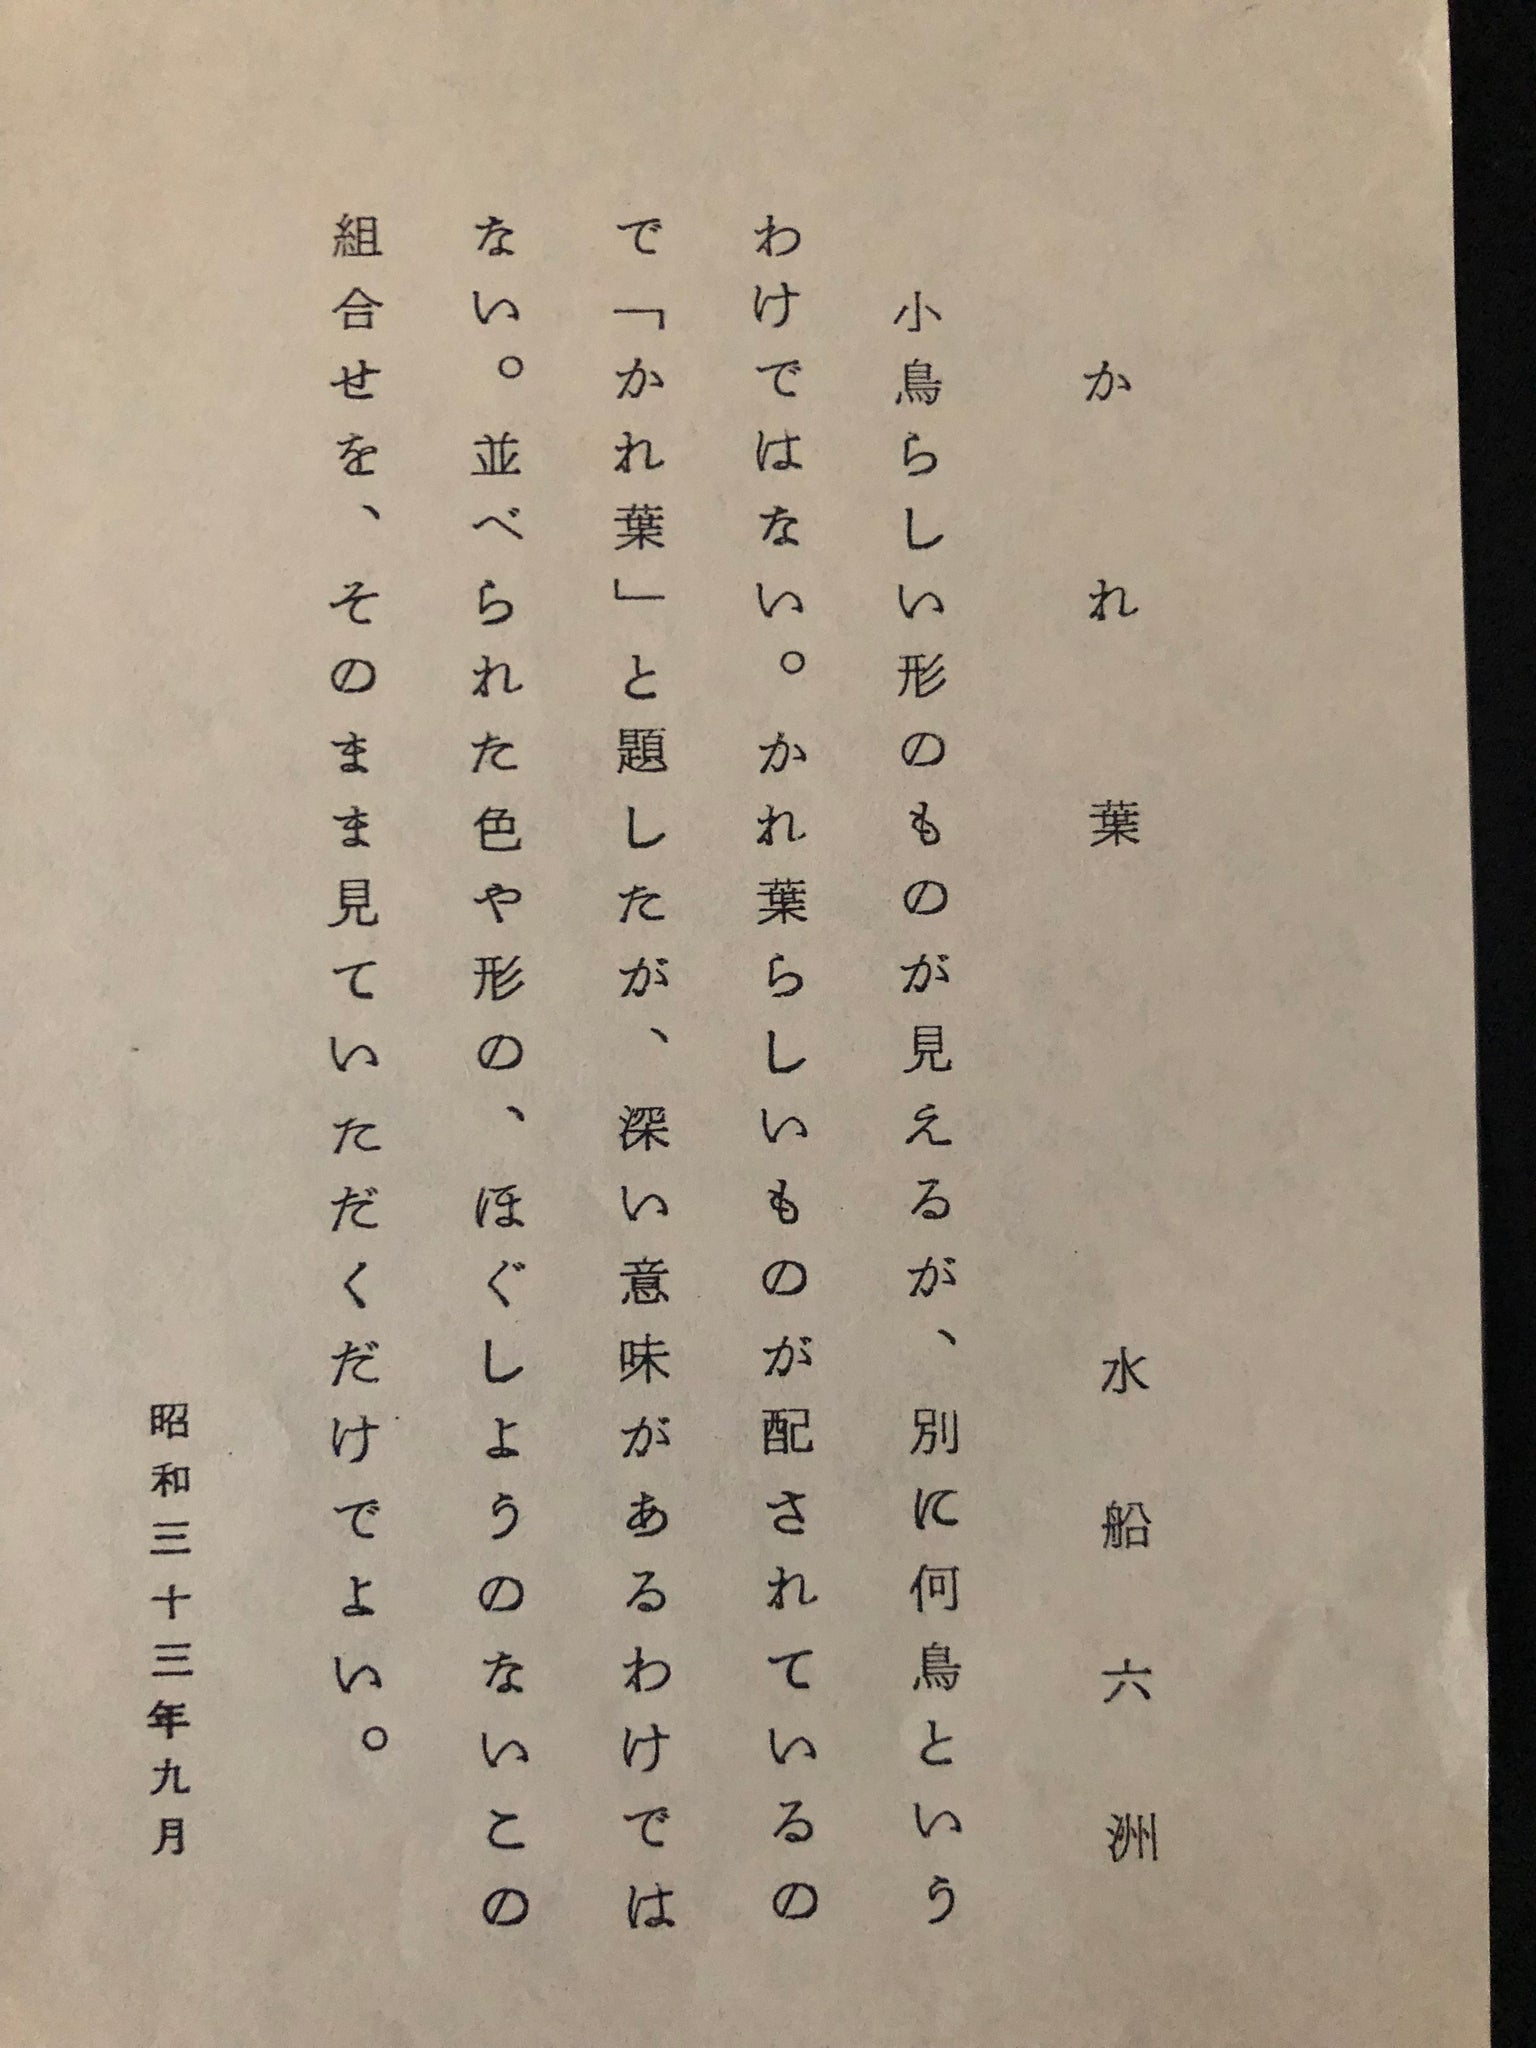 かれ葉　水船六洲
小鳥らしい形のものが見えるが、別に何鳥という
わけではない。かれ葉らしいものが配されているの
で「かれ葉」と題したが、深い意味があるわけでは
ない。並べられた色や形の、ほぐしようのないこの
組合せを、そのまま見ていただくだけでよい。
昭和三十三年九月